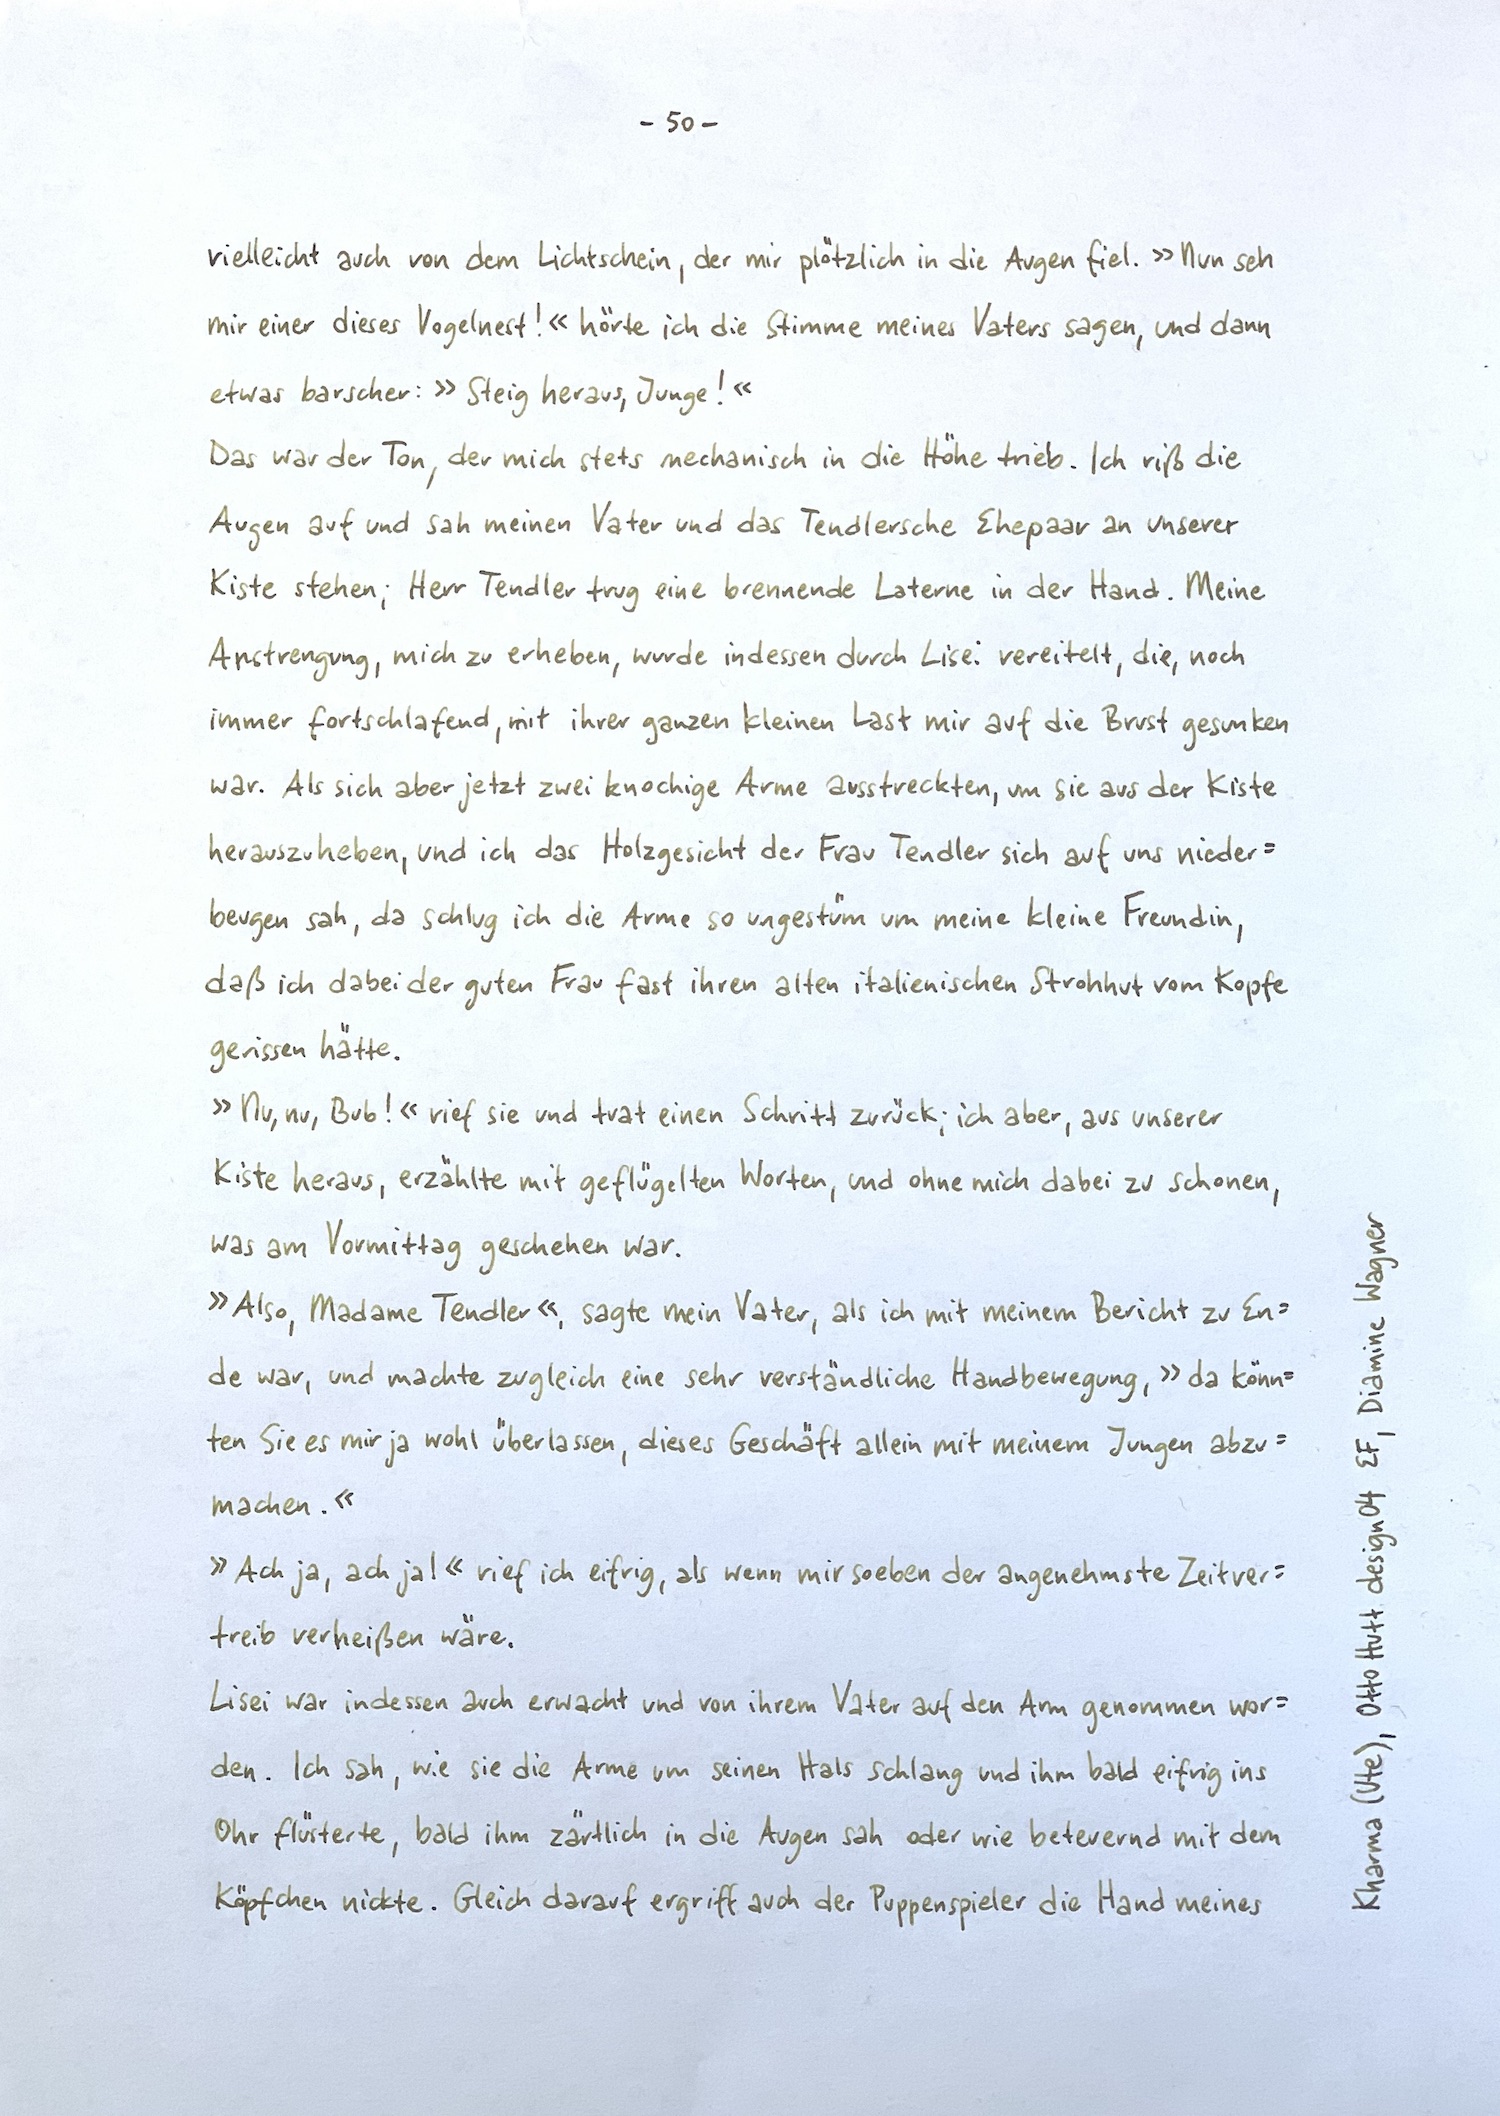 - 50 -
vielleicht auch von dem Lichtschein, der mir plötzlich in die Augen fiel. »Nun seh
mir einer dieses Vogelnest!« hörte ich die Stimme meines Vaters sagen, und dann
etwas barscher: »Steig heraus, Junge!«
Das war der Ton, der mich stets mechanisch in die Höhe trieb. Ich riß die
Augen auf und sah meinen Vater und das Tendlersche Ehepaar an unserer
Kiste stehen; Herr Tendler trug eine brennende Laterne in der Hand. Meine
Anstrengung, mich zu erheben, wurde indessen durch Lisei vereitelt, die, noch
immer fortschlafend, mit ihrer ganzen kleinen Last mir auf die Brust gesunken
war. Als sich aber jetzt zwei knochige Arme ausstreckten, um sie aus der Kiste
herauszuheben, und ich das Holzgesicht der Frau Tendler sich auf uns nieder=
beugen sah, da schlug ich die Arme so ungestüm um meine kleine Freundin,
daß ich dabei der guten Frau fast ihren alten italienischen Strohhut vom Kopfe
gerissen hätte.
»Nu, nu, Bub!« rief sie und trat einen Schritt zurück; ich aber, aus unserer
Kiste heraus, erzählte mit geflügelten Worten, und ohne mich dabei zu schonen,
was am Vormittag geschehen war.
»Also, Madame Tendler«, sagte mein Vater, als ich mit meinem Bericht zu En=
de war, und machte zugleich eine sehr verständliche Handbewegung, »da könn=
ten Sie es mir ja wohl überlassen, dieses Geschäft allein mit meinem Jungen abzu=
machen.«
»Ach ja, ach ja!« rief ich eifrig, als wenn mir soeben der angenehmste Zeitver=
treib verheißen wäre.
Lisei war indessen auch erwacht und von ihrem Vater auf den Arm genommen wor=
den. Ich sah, wie sie die Arme um seinen Hals schlang und ihm bald eifrig ins
Ohr flüsterte, bald ihm zärtlich in die Augen sah oder wie beteuernd mit dem
Köpfchen nickte. Gleich darauf ergriff auch der Puppenspieler die Hand meines
Kharma (Ute), Otto Hutt design04 EF, Diamine Wagner